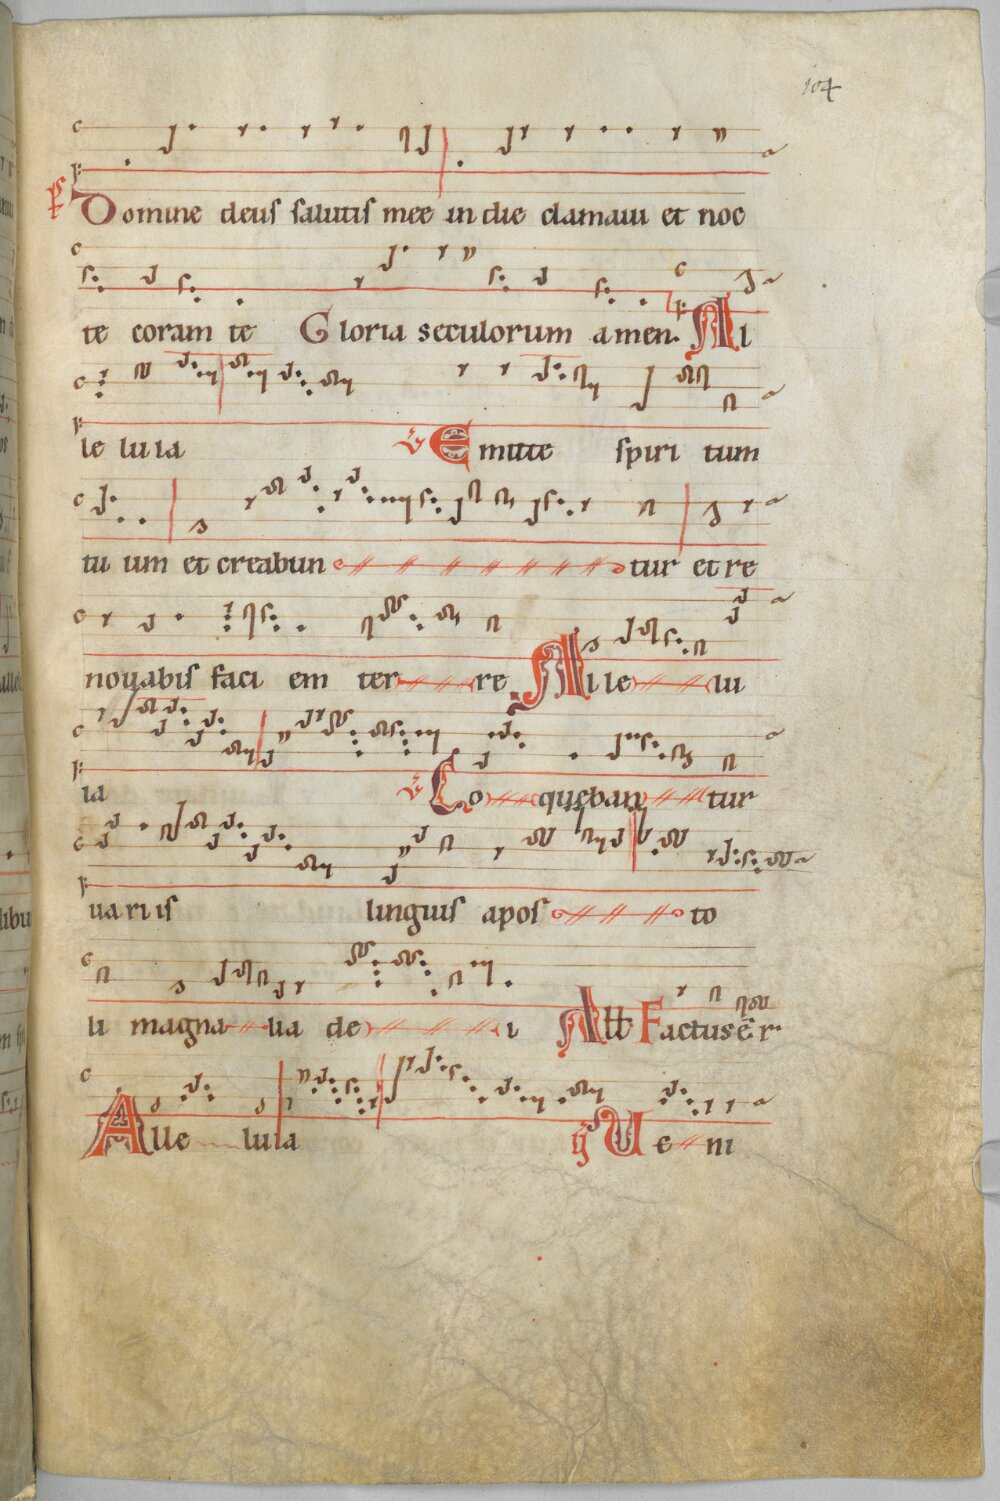 104
Ps Domine deus salutis mee in die clamaui et noc
te coram te Gloria seculorum amen. Al
le lu ia V Emitte spiri tum
tu um et creabun tur et re
nouabis faci em ter re Al le lu
ia V Lo queban tur
uariis linguis apos to
li magna lia de i All Factus e r
Alle luia V Ue ni